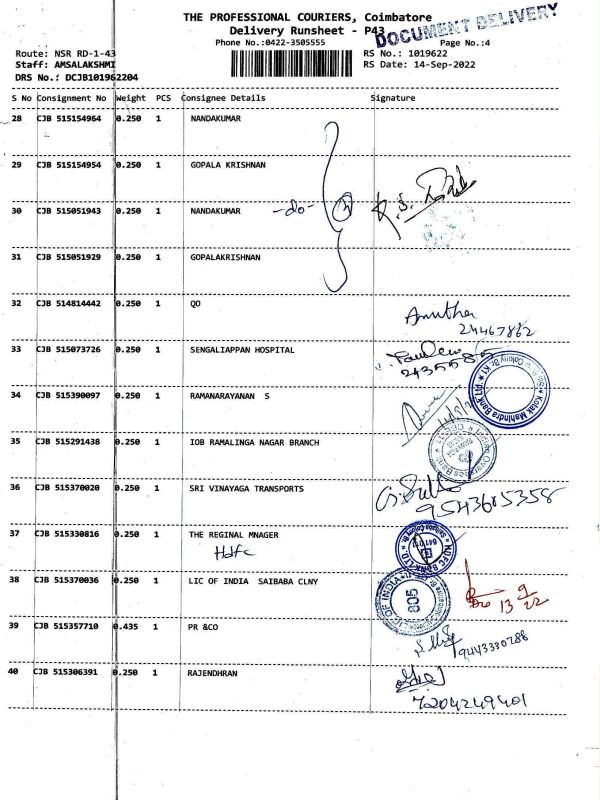 THE PROFESSIONAL COURIERS, Coimbatore
DOCUMENT DELIVERY
Delivery Runsheet - P43
Phone No.:0422-3505555
Page No.:4
Route: NSR RD-1-43
RS No.: 1019622
Staff: AMSALAKSHMI
RS Date: 14-Sep-2022
DRS No.: DCJB101962204
S No Consignment No Weight PCS Consignee Details Signature
28 CJB 515154964 0.250 1 NANDAKUMAR
29 CJB 515154954 0.250 1 GOPALA KRISHNAN
30 CJB 515051943 0.250 1 NANDAKUMAR -do-
31 CJB 515051929 0.250 1 GOPALAKRISHNAN
32 CJB 514814442 0.250 1 QO
24467862
33 CJB 515073726 0.250 1 SENGALIAPPAN HOSPITAL
34 CJB 515390097 0.250 1 RAMANARAYANAN S
Kotak Mahindra Bank
35 CJB 515291438 0.250 1 IOB RAMALINGA NAGAR BRANCH
36 CJB 515370020 0.250 1 SRI VINAYAGA TRANSPORTS
9543605358
37 CJB 515330816 0.250 1 THE REGINAL MNAGER
Hdfc
HDFC BANK LTD
38 CJB 515370036 0.250 1 LIC OF INDIA SAIBABA CLNY
LIC OF INDIA
805
13 9
22
39 CJB 515357710 0.435 1 PR &CO
9443330288
40 CJB 515306391 0.250 1 RAJENDHRAN
7204249401